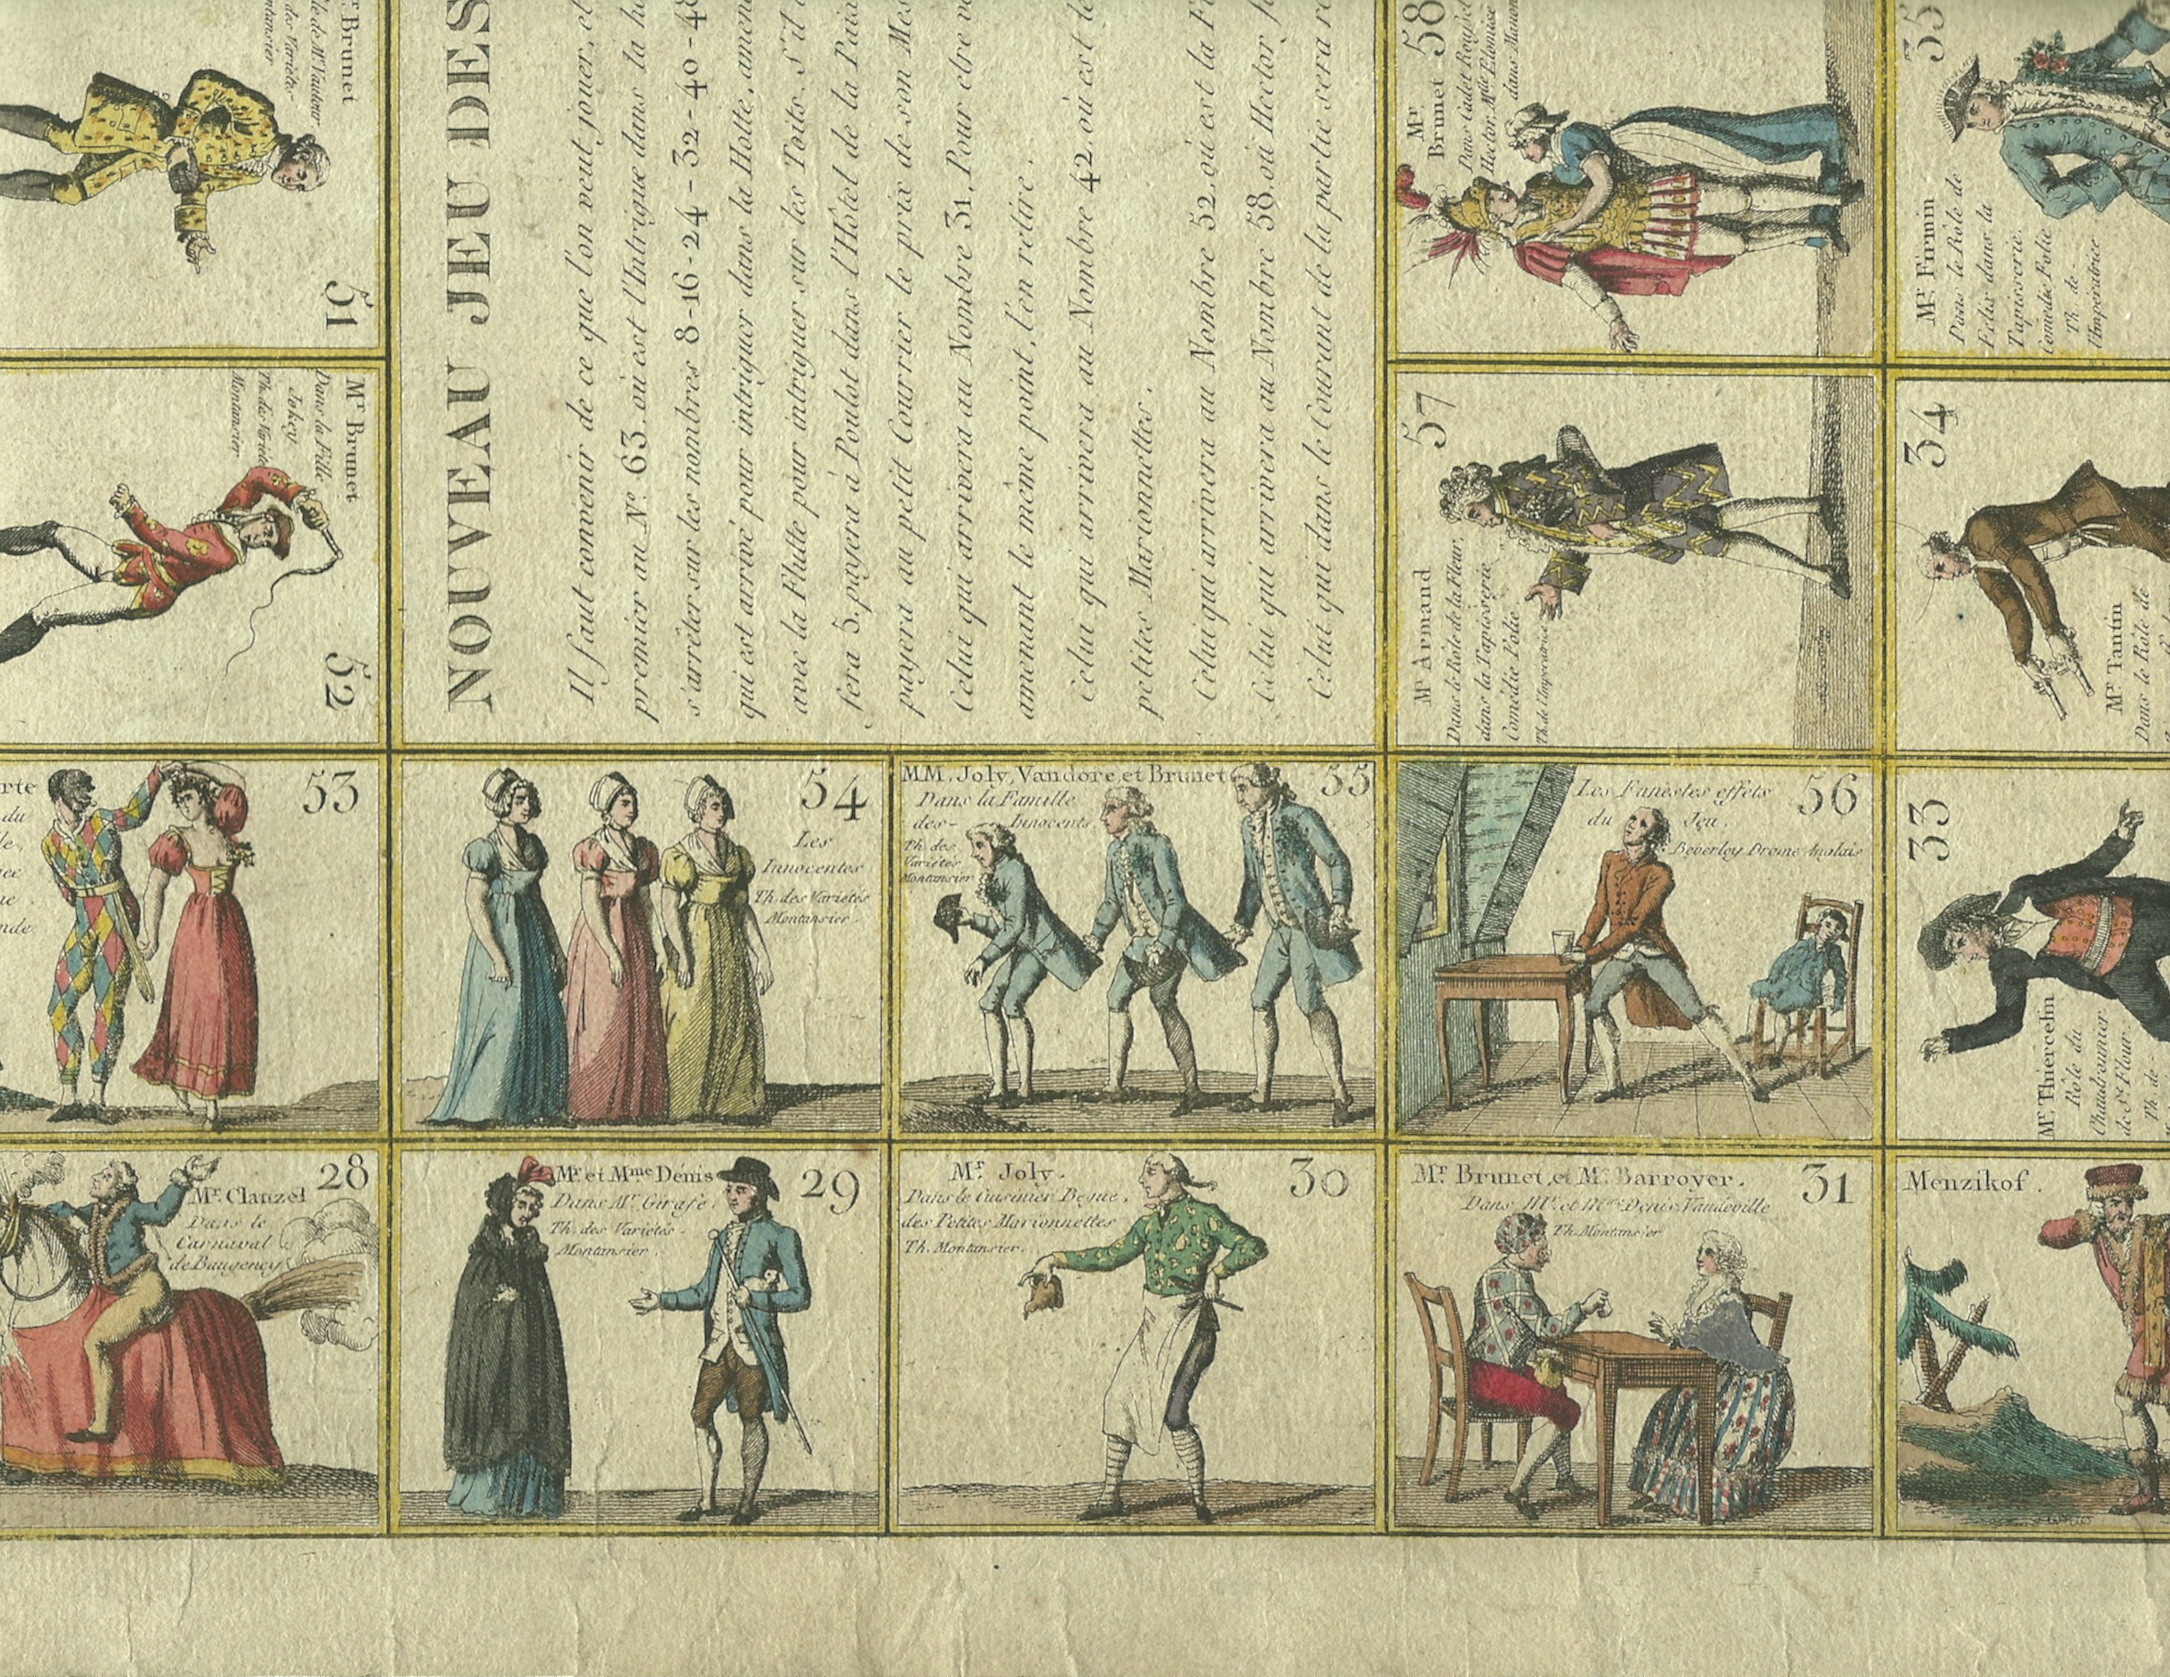 NOUVEAU JEU DES
Il faut convenir de ce que l'on veut jouer, et
premier au Nº 63. où est l'Intrigue dans la
s'arrêter sur les nombres 8-16-24-32-40-48
qui est arrivé pour intriguer dans la Hotte, amen
avec la Flutte pour intriguer sur les Toits. S'il
fera 5. payera à Poulot dans l'Hôtel de la Paix
payera au petit Courrier le prix de son Mes
Celui qui arrivera au Nombre 31. Pour être
amenant le même point, l'en retire.
Celui qui arrivera au Nombre 42. où est
petites Marionnettes.
Celui qui arrivera au Nombre 52. où est la
Celui qui arrivera au Nombre 58. où Hector
Celui qui dans le Courant de la partie sera
Brunet
le de Mr. Vautour
des Variétés
ntansier
51
Mr. Brunet
Dans la Fille
Jokey.
Th. des Variétés
Montansier
52
rte
du
53
54
Les
Innocentes
Th. des Variétés
Montansier.
MM. Joly, Vandore, et Brunet
55
Dans la Famille
des Innocents.
Th. des
Variétés
Montansier
Les Funestes effets
56
du Jeu.
Beverley Drame Anglais
57
Mr. Armand
Dans le Rôle de la Fleur,
dans la Tapisserie
Comédie Folie
Th. de l'Impératrice
58
Mr.
Brunet
Dans Cadet Roussel
Hector, Mlle. Elomise
dans Manon
35
Mr. Firmin
Dans le Rôle de
Felix dans la
Tapisserie.
Comédie Folie
Th. de
l'Impératrice
34
Mr. Tantin
Dans le Rôle de
33
Mr. Thiercelin
Rôle du
Chaudronnier
de St. Flour.
Th. de
28
Mr. Clauzel
Dans le
Carnaval
de Baugency
Mr. et Mme. Dénis
29
Dans Mr. Girafe.
Th. des Variétés
Montansier.
Mr. Joly.
30
Dans le Cuisinier Begue,
des Petites Marionnettes
Th. Montansier.
Mr. Brunet, et Mr. Barroyer.
31
Dans Mr. et Mme. Denis, Vaudeville
Th. Montansier
Menzikof.